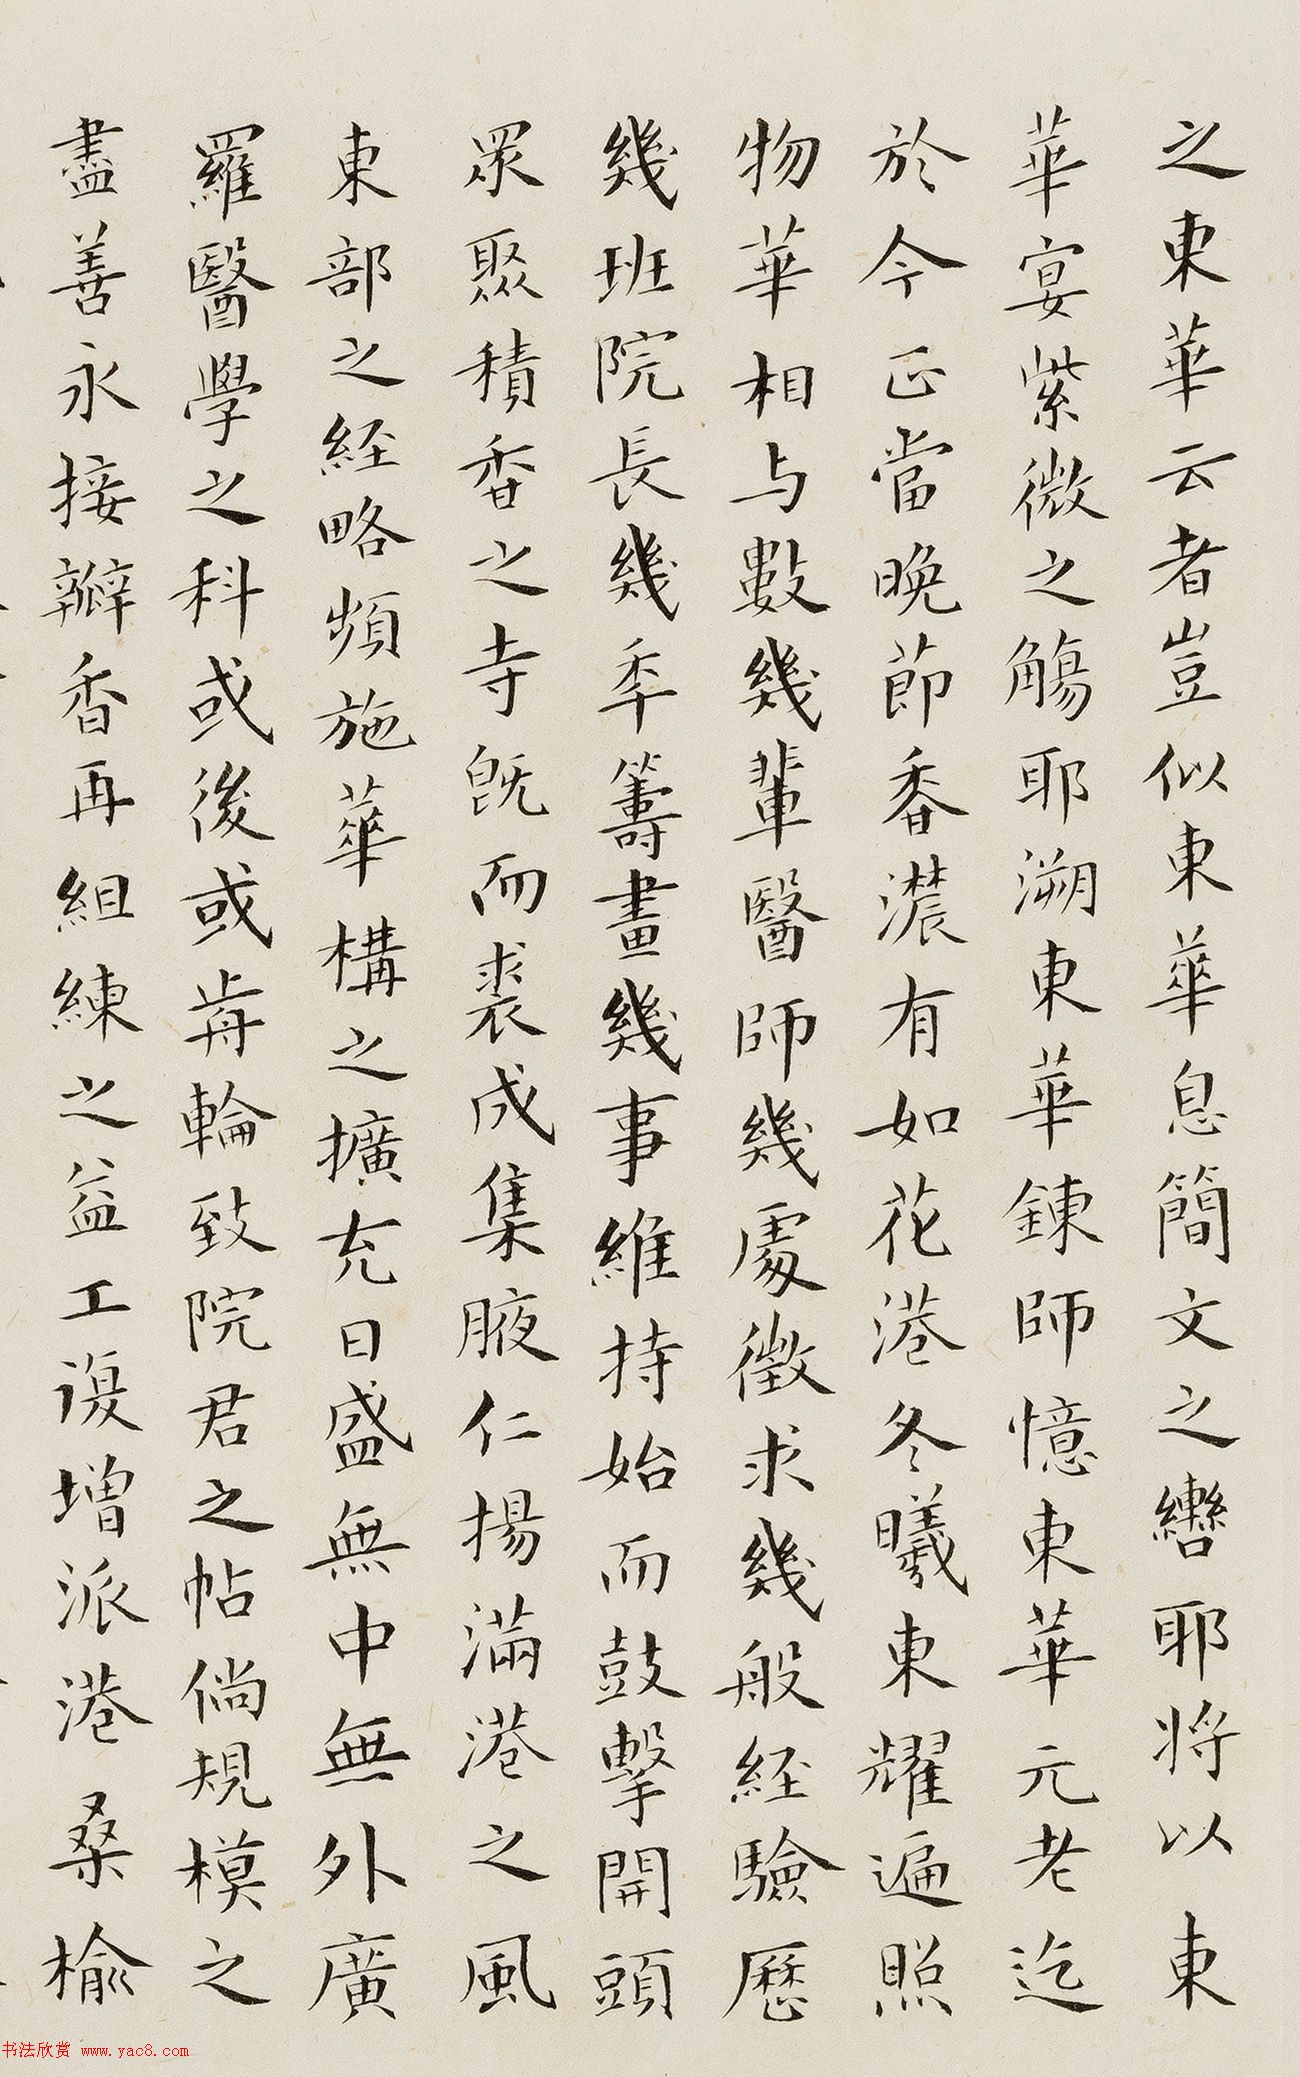 之東華云者豈似東華息簡文之轡耶將以東
華宴紫微之觴耶溯東華鍊師憶東華元老迄
於今正當晚節香濃有如花港冬曦東耀遍照
物華相与數幾輩醫師幾處徵求幾般經驗歷
幾班院長幾季籌畫幾事維持始而鼓擊開頭
眾聚積香之寺既而裘成集腋仁揚滿港之風
東部之經略頻施華構之擴充日盛無中無外廣
羅醫學之科或後或歬輪致院君之帖倘規模之
盡善永接瓣香再組練之益工復增派港桑榆
书法欣赏 www.yac8.com